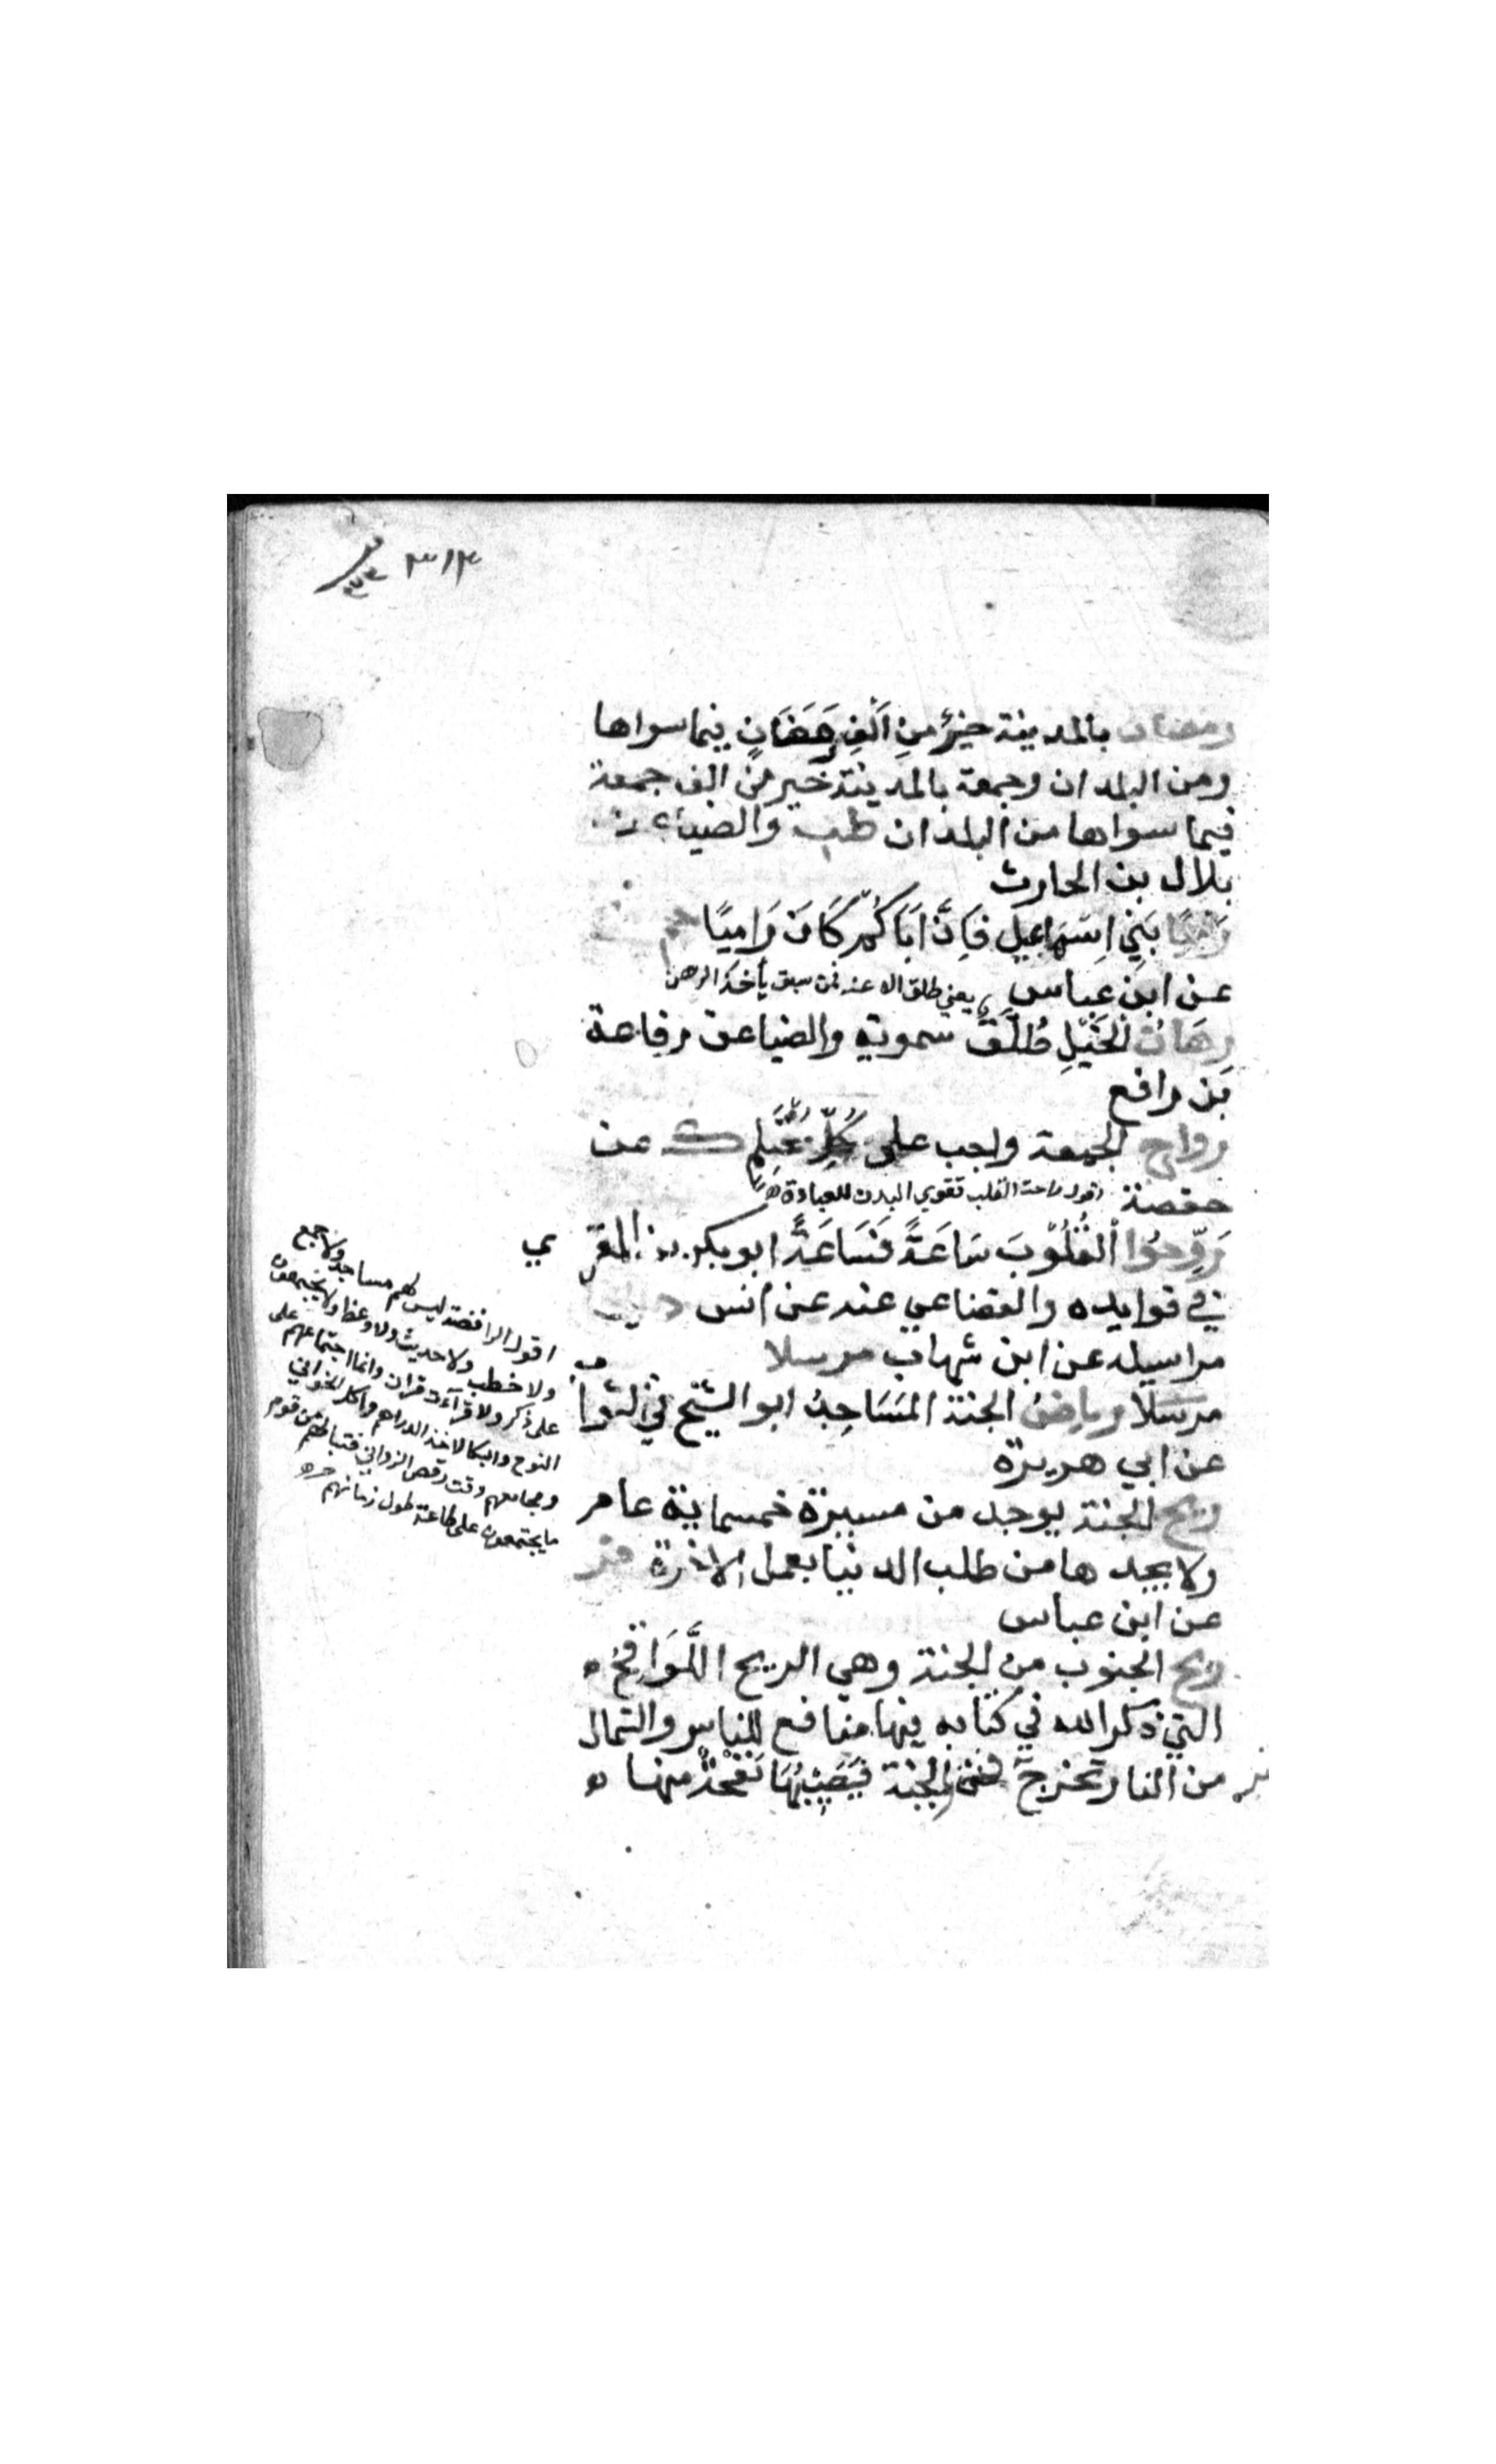 ٣١٣
رمضان بالمدينة خَيْرٌ مِن اَلْفِ رَمَضَانٍ فيما سواها
ومن البلدان وجمعة بالمدينة خير من الف جمعة
فيما سواها من البلدان طب والضياء عن
بلال بن الحارث
رَمْيًا بَنِي اِسْمَاعِيلِ فَاِنَّ اَبَاكُمْ كَانَ رَامِيًا
عن ابن عباس يعني طلق اله عنه فمن سبق يأخذ الرهن
رِهَانُ الخَيْلِ طُلْقٌ سمويه والضيا عن رفاعة
بن رافع
رواح الجمعة واجب على كُلِّ مُحْتَلِمٍ ك عن
حفصة اقول راحة القلب تقوي البدن للعبادة
رَوِّحُوا الْقُلُوْبَ سَاعَةً فَسَاعَةً ابو بكر بن المقري
في فوايده والقضاعي عنه عن انس د في
مراسيله عن ابن شهاب مرسلا
مرسلا رياضُ الجنة المَسَاجِدُ ابو الشيخ في الثواب
عن ابي هريرة
ريح الجنة يوجد من مسيرة خمسماية عام
ولا يجدها من طلب الدنيا بعمل الاخرة فر
عن ابن عباس
ريح الجنوب من الجنة وهي الريح اللَّوَاقِحُ
التي ذكر الله في كتابه فيها منافع للناس والشمال
من النار تخرج فتمر بالجنة فَيُصِيْبُهَا نَفْحَةٌ منها
اقول الرافضة ليس لهم مساجد ولا جمع
ولا خطب ولا حديث ولا وعظ ولا يجتمعون
على ذكر ولا قرآءت قران وانما اجتماعهم على
النوح والبكا لاخذ الدراهم واكل
ومجامعهم وقت رقص الزواني فتبا لهم من قوم
ما يجتمعون على طاعة طول زمانهم